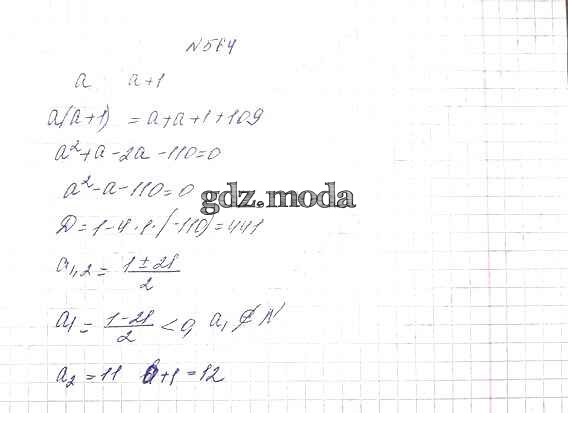 N564
a a+1
a(a+1) = a+a+1+109
a²+a-2a-110=0
a²-a-110=0
gdz.moda
D=1-4·1·(-110)=441
a₁,₂ = (1±21)/2
a₁ = (1-21)/2 < 0, a₁ ∉ N
a₂ = 11 a+1 = 12